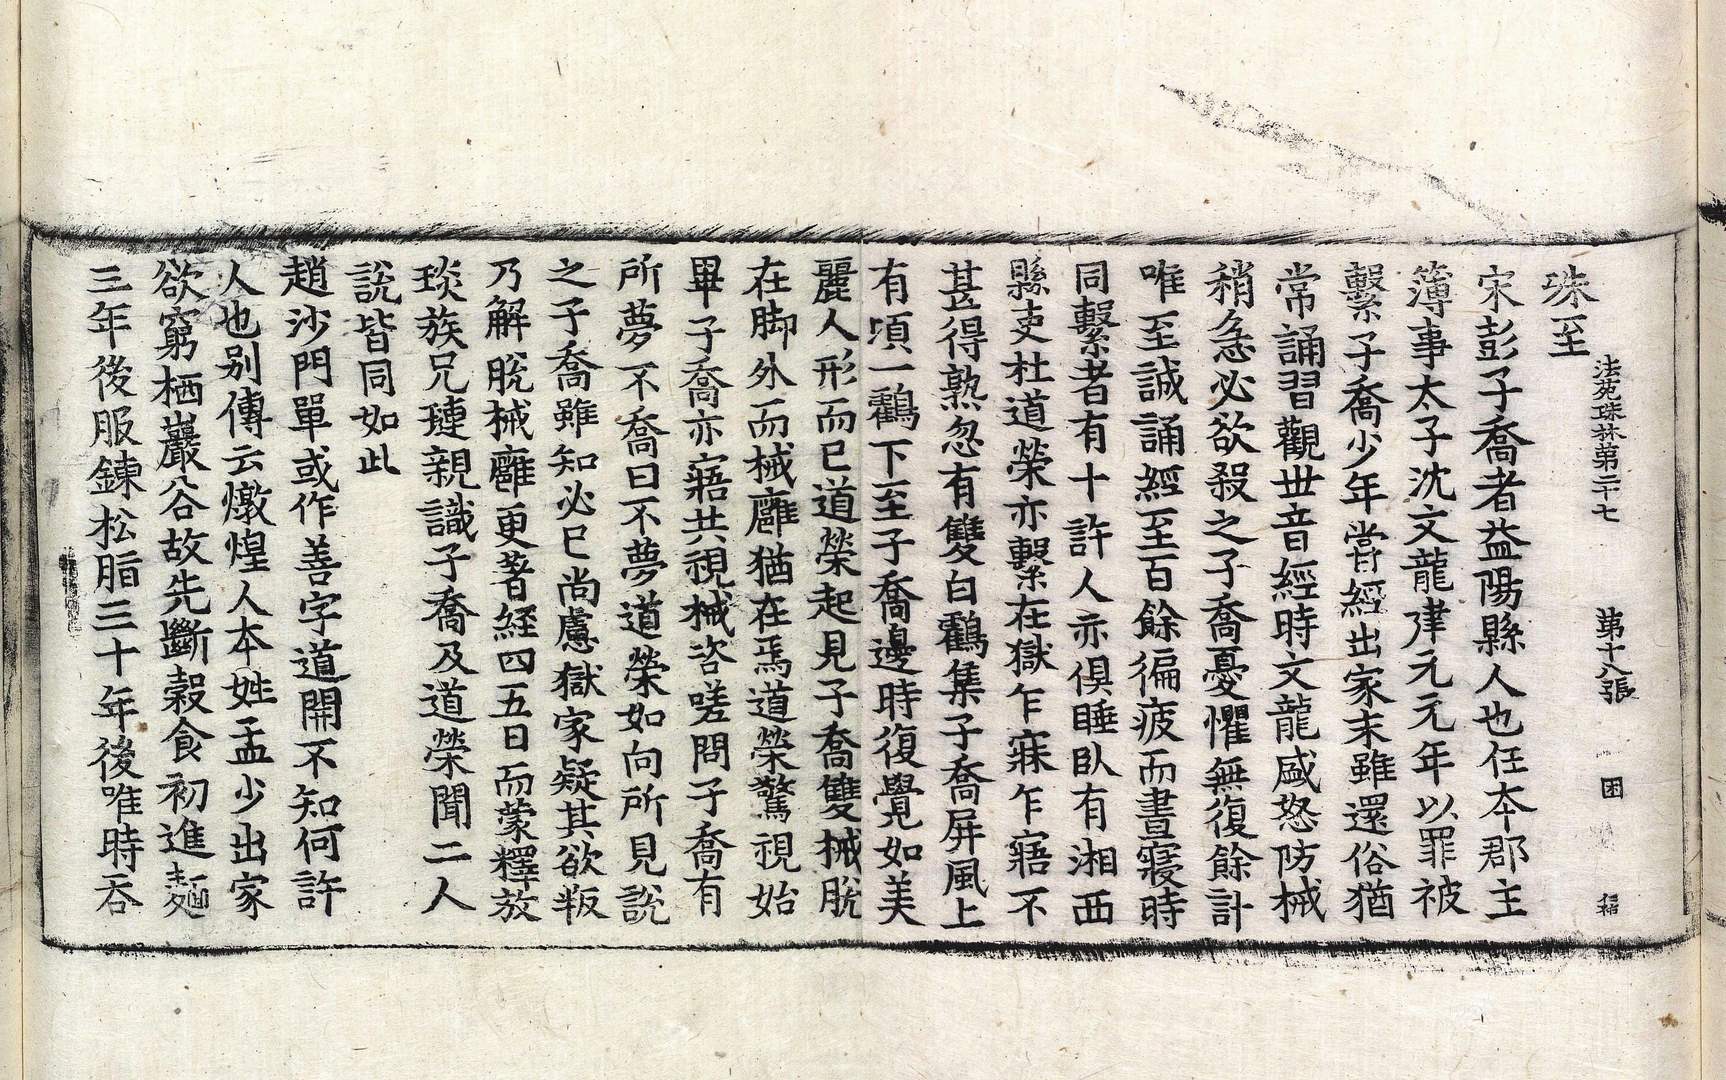 法苑珠林第二十七 第十八張 困
珠至
宋彭子喬者益陽縣人也任本郡主
簿事太子沈文龍建元元年以罪被
繫子喬少年甞經出家末雖還俗猶
常誦習觀世音經時文龍盛怒防械
稍急必欲殺之子喬憂懼無復餘計
唯至誠誦經至百餘徧疲而晝寢時
同繫者有十許人亦俱睡臥有湘西
縣吏杜道榮亦繫在獄乍寐乍寤不
甚得熟忽有雙白鸖集子喬屏風上
有頃一鸖下至子喬邊時復覺如美
麗人形而已道榮起見子喬雙械脫
在脚外而械癰猶在焉道榮驚視始
畢子喬亦寤共視械咨嗟問子喬有
所夢不喬曰不夢道榮如向所見說
之子喬雖知必已尚慮獄家疑其欲叛
乃解脫械癰更著經四五日而蒙釋放
琰族兄璉親識子喬及道榮聞二人
說皆同如此
趙沙門單或作善字道開不知何許
人也别傳云燉煌人本姓孟少出家
欲窮栖巖谷故先斷穀食初進麵
三年後服鍊松脂三十年後唯時吞